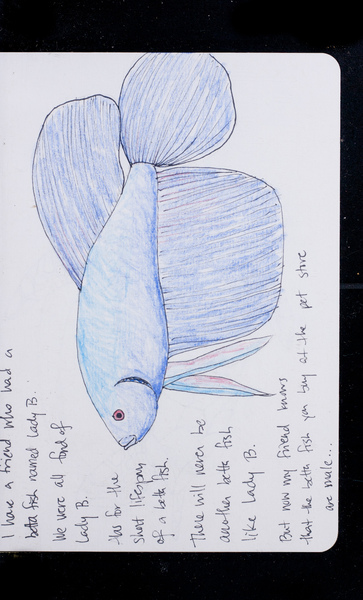 I have a friend who had a
betta fish named Lady B.
We were all fond of
Lady B.
for the
short lifespan
of a betta fish.
There will never be
another betta fish
like Lady B.
But now my friend knows
that the betta fish you buy at the pet store
are male...